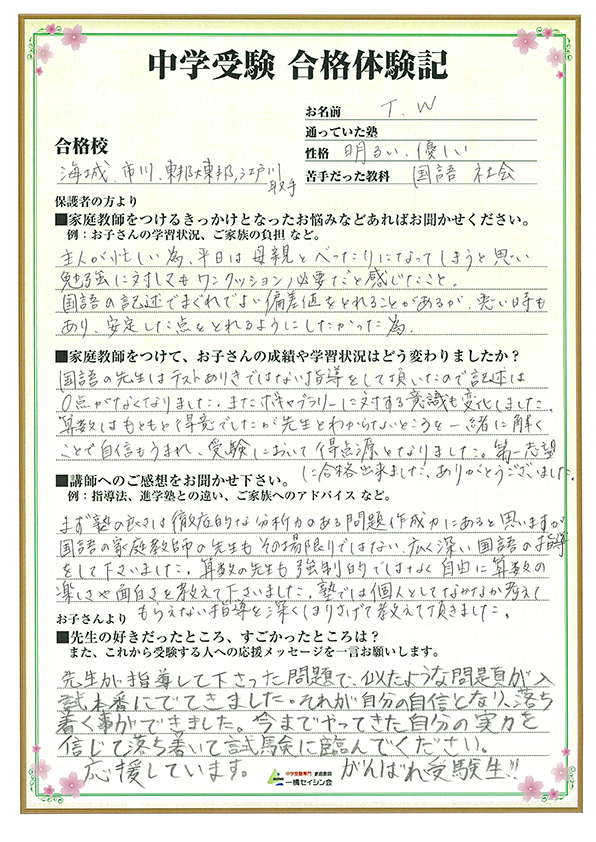 中学受験 合格体験記
お名前 T.W
通っていた塾
合格校
性格 明るい、優しい
海城、市川、東邦大東邦、江戸川取手
苦手だった教科 国語 社会
保護者の方より
■家庭教師をつけるきっかけとなったお悩みなどあればお聞かせください。
例：お子さんの学習状況、ご家族の負担 など。
主人が忙しい為、平日は母親とべったりになってしまうと思い
勉強に対してもワンクッション必要だと感じたこと。
国語の記述でまぐれでよい偏差値をとれることがあるが、悪い時も
あり、安定した点をとれるようにしたかった為。
■家庭教師をつけて、お子さんの成績や学習状況はどう変わりましたか？
国語の先生はテストありきではない指導をして頂いたので記述は
0点がなくなりました。またボキャブラリーに対する意識も変化しました。
算数はもともと得意でしたが先生とわからないところを一緒に解く
ことで自信もうまれ、受験において得点源となりました。第一志望
に合格出来ました、ありがとうございました。
■講師へのご感想をお聞かせ下さい。
例：指導法、進学塾との違い、ご家族へのアドバイス など。
まず塾の良さは徹底的な分析力のある問題作成力にあると思いますが
国語の家庭教師の先生もその場限りではない、広く深い国語の指導
をして下さいました。算数の先生も強制的ではなく自由に算数の
楽しさや面白さを教えて下さいました。塾では個人としてなかなか考えて
もらえない指導を深くほりさげて教えて頂きました。
お子さんより
■先生の好きだったところ、すごかったところは？
また、これから受験する人への応援メッセージを一言お願いします。
先生が指導して下さった問題で、似たような問題が入
試本番にでてきました。それが自分の自信となり、落ち
着く事ができました。今までやってきた自分の実力を
信じて落ち着いて試験に臨んでください。
応援しています。 がんばれ受験生!!
中学受験専門 家庭教師
一橋セイシン会